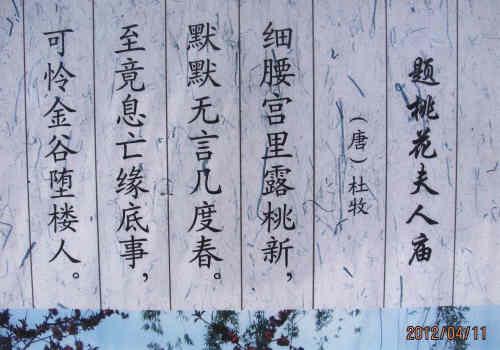 题桃花夫人庙
（唐）杜牧
细腰宫里露桃新，
默默无言几度春。
至竟息亡缘底事，
可怜金谷堕楼人。
2012/04/11